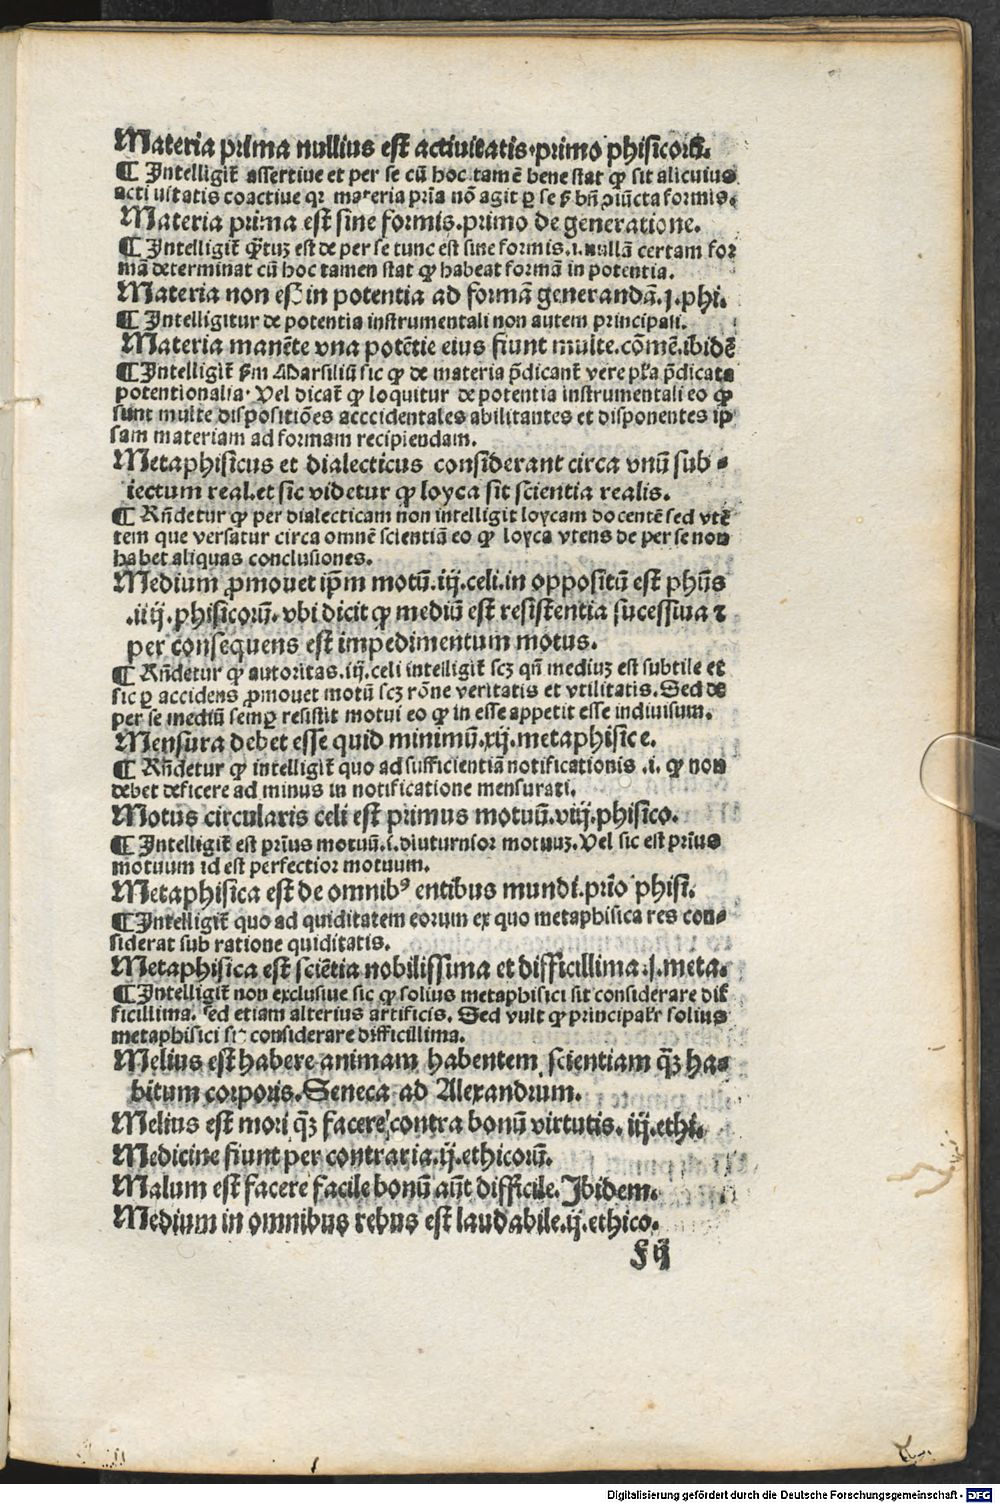 Materia prima nullius est actiuitatis.primo phisicorũ.
¶ Intelligit᷑ assertiue et per se cũ hoc tamẽ bene stat ꝙ sit alicuius
acti uitatis coactiue qꝛ materia pꝛia nõ agit ꝑ se s̃ bñ ꝓiũcta formis.
Materia prima est sine formis.primo de generatione.
¶ Intelligit᷑ q̃tuꝫ est de per se tunc est sine formis.i.nullã certam for
mã determinat cũ hoc tamen stat ꝙ habeat formã in potentia.
Materia non est in potentia ad formã generandã.j.phi.
¶ Intelligitur de potentia instrumentali non autem principali.
Materia manẽte vna potẽtie eius fiunt multe.cõmẽ.ibidẽ
¶ Intelligit᷑ s̃m Marsiliũ sic ꝙ de materia p̃dicant᷑ vere pl̃a p̃dicata
potentionalia. Vel dicat᷑ ꝙ loquitur de potentia instrumentali eo ꝙ
sunt multe dispositiões acccidentales abilitantes et disponentes ip
sam materiam ad formam recipiendam.
Metaphisicus et dialecticus considerant circa vnũ sub-
iectum real.et sic videtur ꝙ loyca sit scientia realis.
¶ Rñdetur ꝙ per dialecticam non intelligit loycam docentẽ sed vtẽ
tem que versatur circa omnẽ scientiã eo ꝙ loyca vtens de per se non
habet aliquas conclusiones.
Medium ꝓmouet ip̃m motũ.iij.celi.in oppositũ est ph̃us
.iiij.phisicorũ.vbi dicit ꝙ mediũ est resistentia sucessiua ⁊
per consequens est impedimentum motus.
¶ Rñdetur ꝙ autoritas.iij.celi intelligit᷑ scꝫ qñ mediuꝫ est subtile et
sic ꝑ accidens ꝓmouet motũ scꝫ rõne veritatis et vtilitatis.Sed de
per se mediũ semꝑ resistit motui eo ꝙ in esse appetit esse indiuisum.
Mensura debet esse quid minimũ.xij.metaphisice.
¶ Rñdetur ꝙ intelligit᷑ quo ad sufficientiã notificationis .i. ꝙ non
debet deficere ad minus in notificatione mensurati.
Motus circularis celi est primus motuũ.viij.phisico.
¶ Intelligit᷑ est pr̃ius motuũ.i.diuturnior motuuꝫ.Vel sic est pr̃ius
motuum id est perfectior motuum.
Metaphisica est de omnibꝰ entibus mundi.pr̃io phisi.
¶ Intelligit᷑ quo ad quiditatem eorum ex quo metaphisica res con-
siderat sub ratione quiditatis.
Metaphisica est sciẽtia nobilissima et difficillima.j.meta.
¶ Intelligit᷑ non exclusiue sic ꝙ solius metaphisici sit considerare dif
ficillima. sed etiam alterius artificis. Sed vult ꝙ principalr̃ solius
metaphisici sit considerare difficillima.
Melius est habere animam habentem scientiam q̃ꝫ ha-
bitum corporis.Seneca ad Alexandrum.
Melius est mori q̃ꝫ facere contra bonũ virtutis. iij.ethi.
Medicine fiunt per contraria.ij.ethicorũ.
Malum est facere facile bonũ aũt difficile. Ibidem.
Medium in omnibus rebus est laudabile.ij.ethico.
f ij
Digitalisierung gefördert durch die Deutsche Forschungsgemeinschaft - DFG